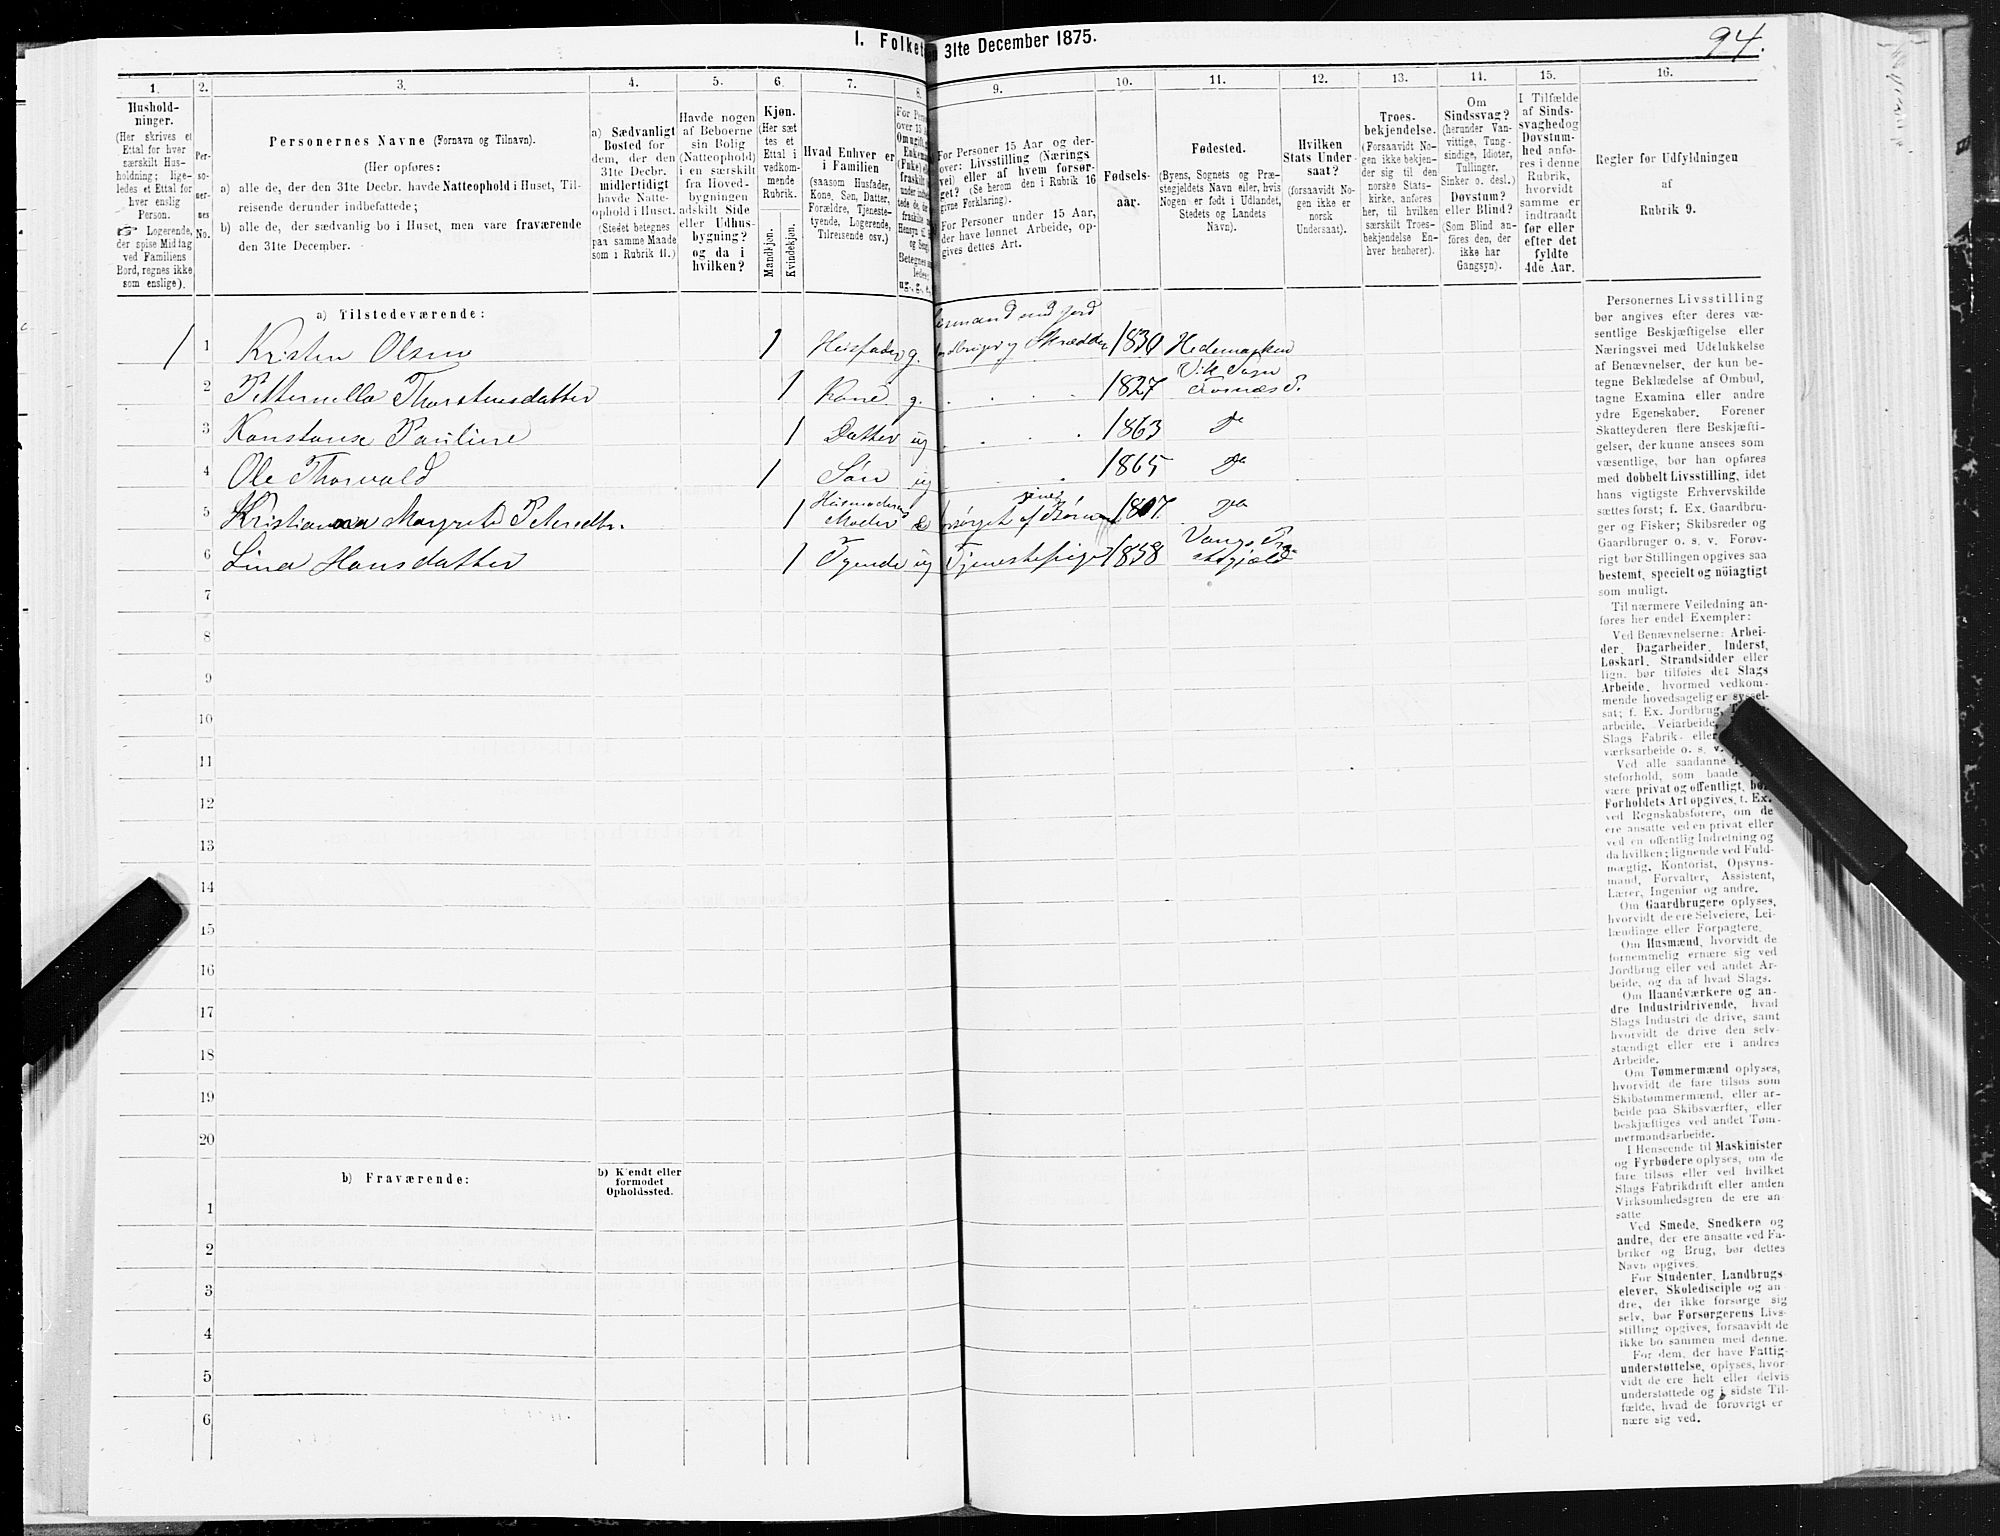 94.
I. Folket
31te December 1875.
1.
2.
3.
4.
5.
6.
7.
8.
9.
10.
11.
12.
13.
14.
15.
16.
Hushold-
ninger.
(Her skrives et
Ettal for hver
særskilt Hus-
holdning; lige-
ledes et Ettal for
hver enslig
Person.
☞ Logerende,
der spise Middag
ved Familiens
Bord, regnes ikke
som enslige).
Per-
so-
ner-
nes
No.
Personernes Navne (Fornavn og Tilnavn).
(Her opføres:
a) alle de, der den 31te Decbr. havde Natteophold i Huset, Til-
reisende derunder indbefattede;
b) alle de, der sædvanlig bo i Huset, men vare fraværende
den 31te December.
a) Sædvanligt
Bosted for
dem, der den
31te Decbr.
midlertidigt
havde Natte-
ophold i Huset.
(Stedet betegnes
paa samme Maade
som i Rubrik 11.)
Havde nogen
af Beboerne
sin Bolig
(Natteophold)
i en særskilt
fra Hoved-
bygningen
adskilt Side
eller Udhus-
bygning?
og da i
hvilken?
Kjøn.
(Her sæt
tes et
Ettal i
vedkom-
mende
Rubrik.
Mandkjøn.
Kvindekjøn.
Hvad Enhver er
i Familien
(saasom Husfader,
Kone, Søn, Datter,
Forældre, Tjeneste-
tyende, Logerende,
Tilreisende osv.)
ug., g., e.,
For Personer 15 Aar og der-
over: Livsstilling (Nærings
vei) eller af hvem forsør-
get? (Se herom den i Rubrik 16
givne Forklaring).
For Personer under 15 Aar,
der have lønnet Arbeide, op-
gives dettes Art.
Fødsels-
aar.
Fødested.
(Byens, Sognets og Præ-
stegjeldets Navn eller, hvis
Nogen er født i Udlandet,
Stedets og Landets
Navn).
Hvilken
Stats Under-
saat?
(forsaavidt No-
gen ikke er
norsk
Undersaat).
Troes-
bekjendelse.
(Forsaavidt No-
gen ikke bekjen-
der sig til den
norske Stats-
kirke, anføres
her, til hvilken
særskilt Troes-
bekjendelse En-
hver henhører).
Om
Sindssvag?
(herunder Van-
vittige, Tung-
sindige, Idioter,
Tullinger,
Sinker o. desl.)
Døvstum?
eller Blind?
(Som Blind an-
føres den, der
ikke har
Gangsyn).
I Tilfælde
af Sinds-
svaghed og
Døvstum-
hed anfø-
res i denne
Rubrik,
hvorvidt
samme er
indtraadt
før eller
efter det
fyldte
4de Aar.
Regler for Udfyldningen
af
Rubrik 9.
a) Tilstedeværende:
1 1 Kristen Olsen 1 Husfader g. Skrædder 1830 Hedemarken
2 Petternella Thorstensdatter 1 Kone g. 1827 Vik Sogn
3 Konstanse Pauline 1 Datter ug 1863 Do
4 Ole Thorvald 1 Søn ug 1865 Do
5 Kristianna Margrete Petersdtr. 1 Husmoderens
Moder e forsørget af sine Børn 1807 Do
6 Lina Hansdatter 1 Tyende ug Tjenestepige 1858 Vangs
7
8
9
10
11
12
13
14
15
16
17
18
19
20
b) Fraværende:
b) Kjendt eller
formodet
Opholdssted.
1
2
3
4
5
6
Personernes Livsstilling
bør angives efter deres væ-
sentlige Beskjæftigelse eller
Næringsvei med Udelukkelse
af Benævnelser, der kun be-
tegne Beklædelse af Ombud,
tagne Examina eller andre
ydre Egenskaber. Forener
Skatteyderen flere Beskjæfti-
gelser, der kunne ansees som
væsentlige, bør han opføres
med dobbelt Livsstilling, idet
hans vigtigste Erhvervskilde
sættes først; f. Ex. Gaardbru-
ger og Fisker; Skibsreder og
Gaardbruger o. s. v. Forøv-
rigt bør Stillingen opgives saa
bestemt, specielt og nöiagtigt
som muligt.
Til nærmere Veiledning an-
føres her endel Exempler:
Ved Benævnelserne: Arbei-
der, Dagarbeider, Inderst,
Løskarl, Strandsidder eller
lign. bør tilføies det Slags
Arbeide, hvormed vedkom-
mende hovedsagelig er syssel-
sat; f. Ex. Jordbrug,
arbeide, Veiarbeide,
Slags Fabrik- eller
værksarbeide o. s. v.
Ved alle saadanne
steforhold, som baade
være privat og offentligt, bør
Forholdets Art opgives, t. Ex.
ved Regnskabsførere, om de
ere ansatte ved en privat eller
ved en offentlig Indretning og
da hvilken; lignende ved Fuld-
mægtig, Kontorist, Opsyns-
mand, Forvalter, Assistent,
Lærer, Ingeniør og andre.
Om Gaardbrugere oplyses,
hvorvidt de ere Selveiere, Lei-
lændinge eller Forpagtere.
Om Husmænd, hvorvidt de
fornemmelig ernære sig ved
Jordbrug eller ved andet Ar-
beide, og da af hvad Slags.
Om Haandværkere og an-
dre Industridrivende, hvad
Slags Industri de drive, samt
hvorvidt de drive den selv-
stændigt eller ere i andres
Arbeide.
Om Tømmermænd oplyses,
hvorvidt de fare tilsøs som
Skibstømmermænd, eller ar-
beide paa Skibsværfter, eller
beskjæftiges ved andet Tøm-
mermandsarbeide.
I Henseende til Maskinister
og Fyrbødere oplyses, om de
fare tilsøs eller ved hvilket
Slags Fabrikdrift eller anden
Virksomhedsgren de ere an-
satte.
Ved Smede, Snedkere og
andre, der ere ansatte ved Fa-
briker og Brug, bør dettes
Navn opgives.
For Studenter, Landbrugs-
elever, Skoledisciple og an-
dre, der ikke forsørge sig
selv, bør Forsørgerens Livs-
stilling opgives, forsaavidt de
ikke bo sammen med denne.
For dem, der have Fattig-
understøttelse, oplyses, hvor-
vidt de ere helt eller delvis
understøttede og i sidste Til-
fælde, hvad de forøvrigt er
nære sig ved.